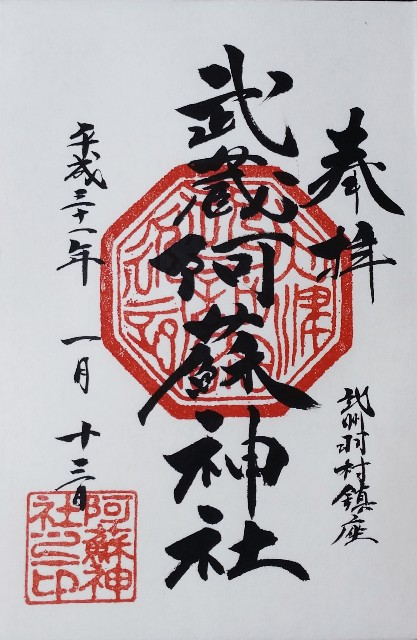 奉拝
武州羽村鎮座
武蔵阿蘇神社
平成三十一年 一月 十三日
阿蘇神
社之印